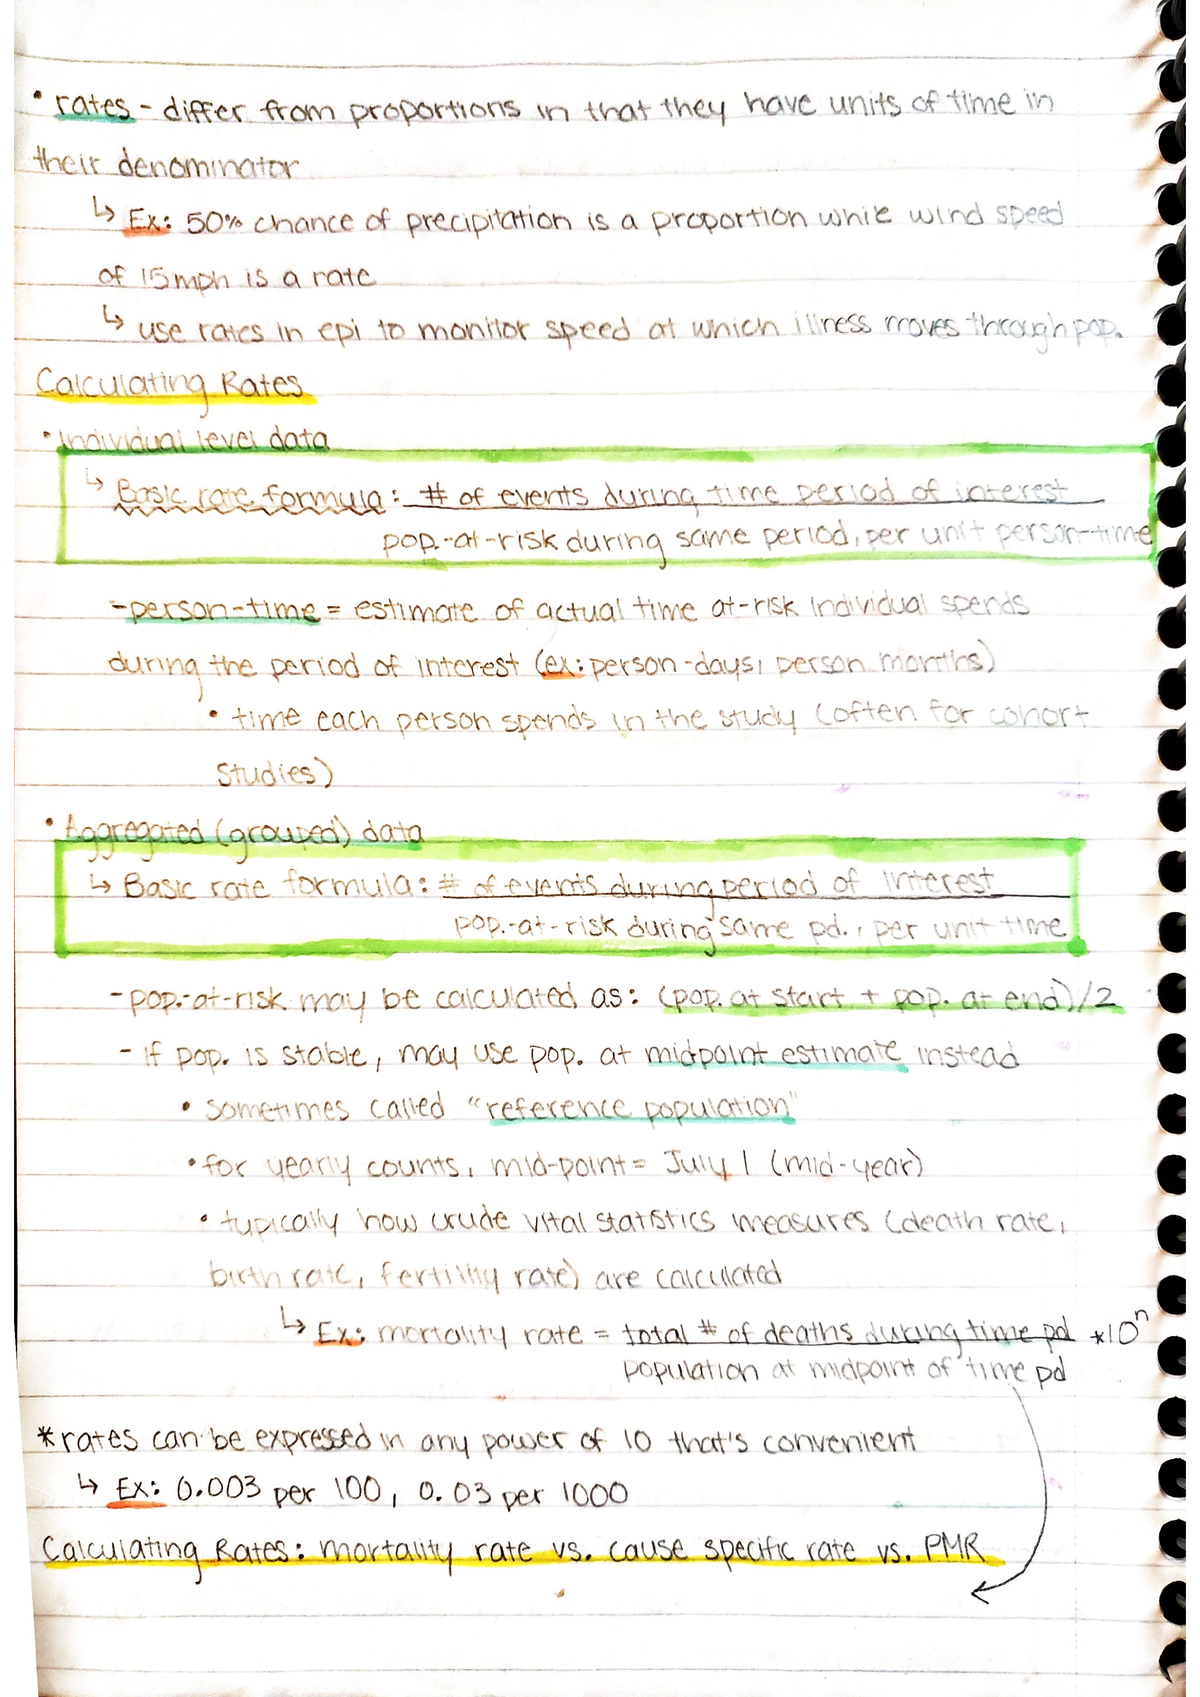 • rates - differ from proportions in that they have units of time in
their denominator
↳ Ex: 50% chance of precipitation is a proportion while wind speed
of 15mph is a rate
↳ use rates in epi to monitor speed at which illness moves through pop.
Calculating Rates
• Individual level data
↳ Basic rate formula: # of events during time period of interest
pop.-at-risk during same period, per unit person-time
- person-time = estimate of actual time at-risk individual spends
during the period of interest (ex: person-days, person months)
• time each person spends in the study (often for cohort
studies)
• Aggregated (grouped) data
↳ Basic rate formula: # of events during period of interest
pop.-at-risk during same pd., per unit time
- pop.-at-risk may be calculated as: (pop. at start + pop. at end)/2
- if pop. is stable, may use pop. at midpoint estimate instead
• sometimes called "reference population"
• for yearly counts, mid-point = July 1 (mid-year)
• typically how crude vital statistics measures (death rate,
birth rate, fertility rate) are calculated
↳ Ex: mortality rate = total # of deaths during time pd *10^n
population at midpoint of time pd
*rates can be expressed in any power of 10 that's convenient
↳ Ex: 0.003 per 100, 0.03 per 1000
Calculating Rates: mortality rate vs. cause specific rate vs. PMR